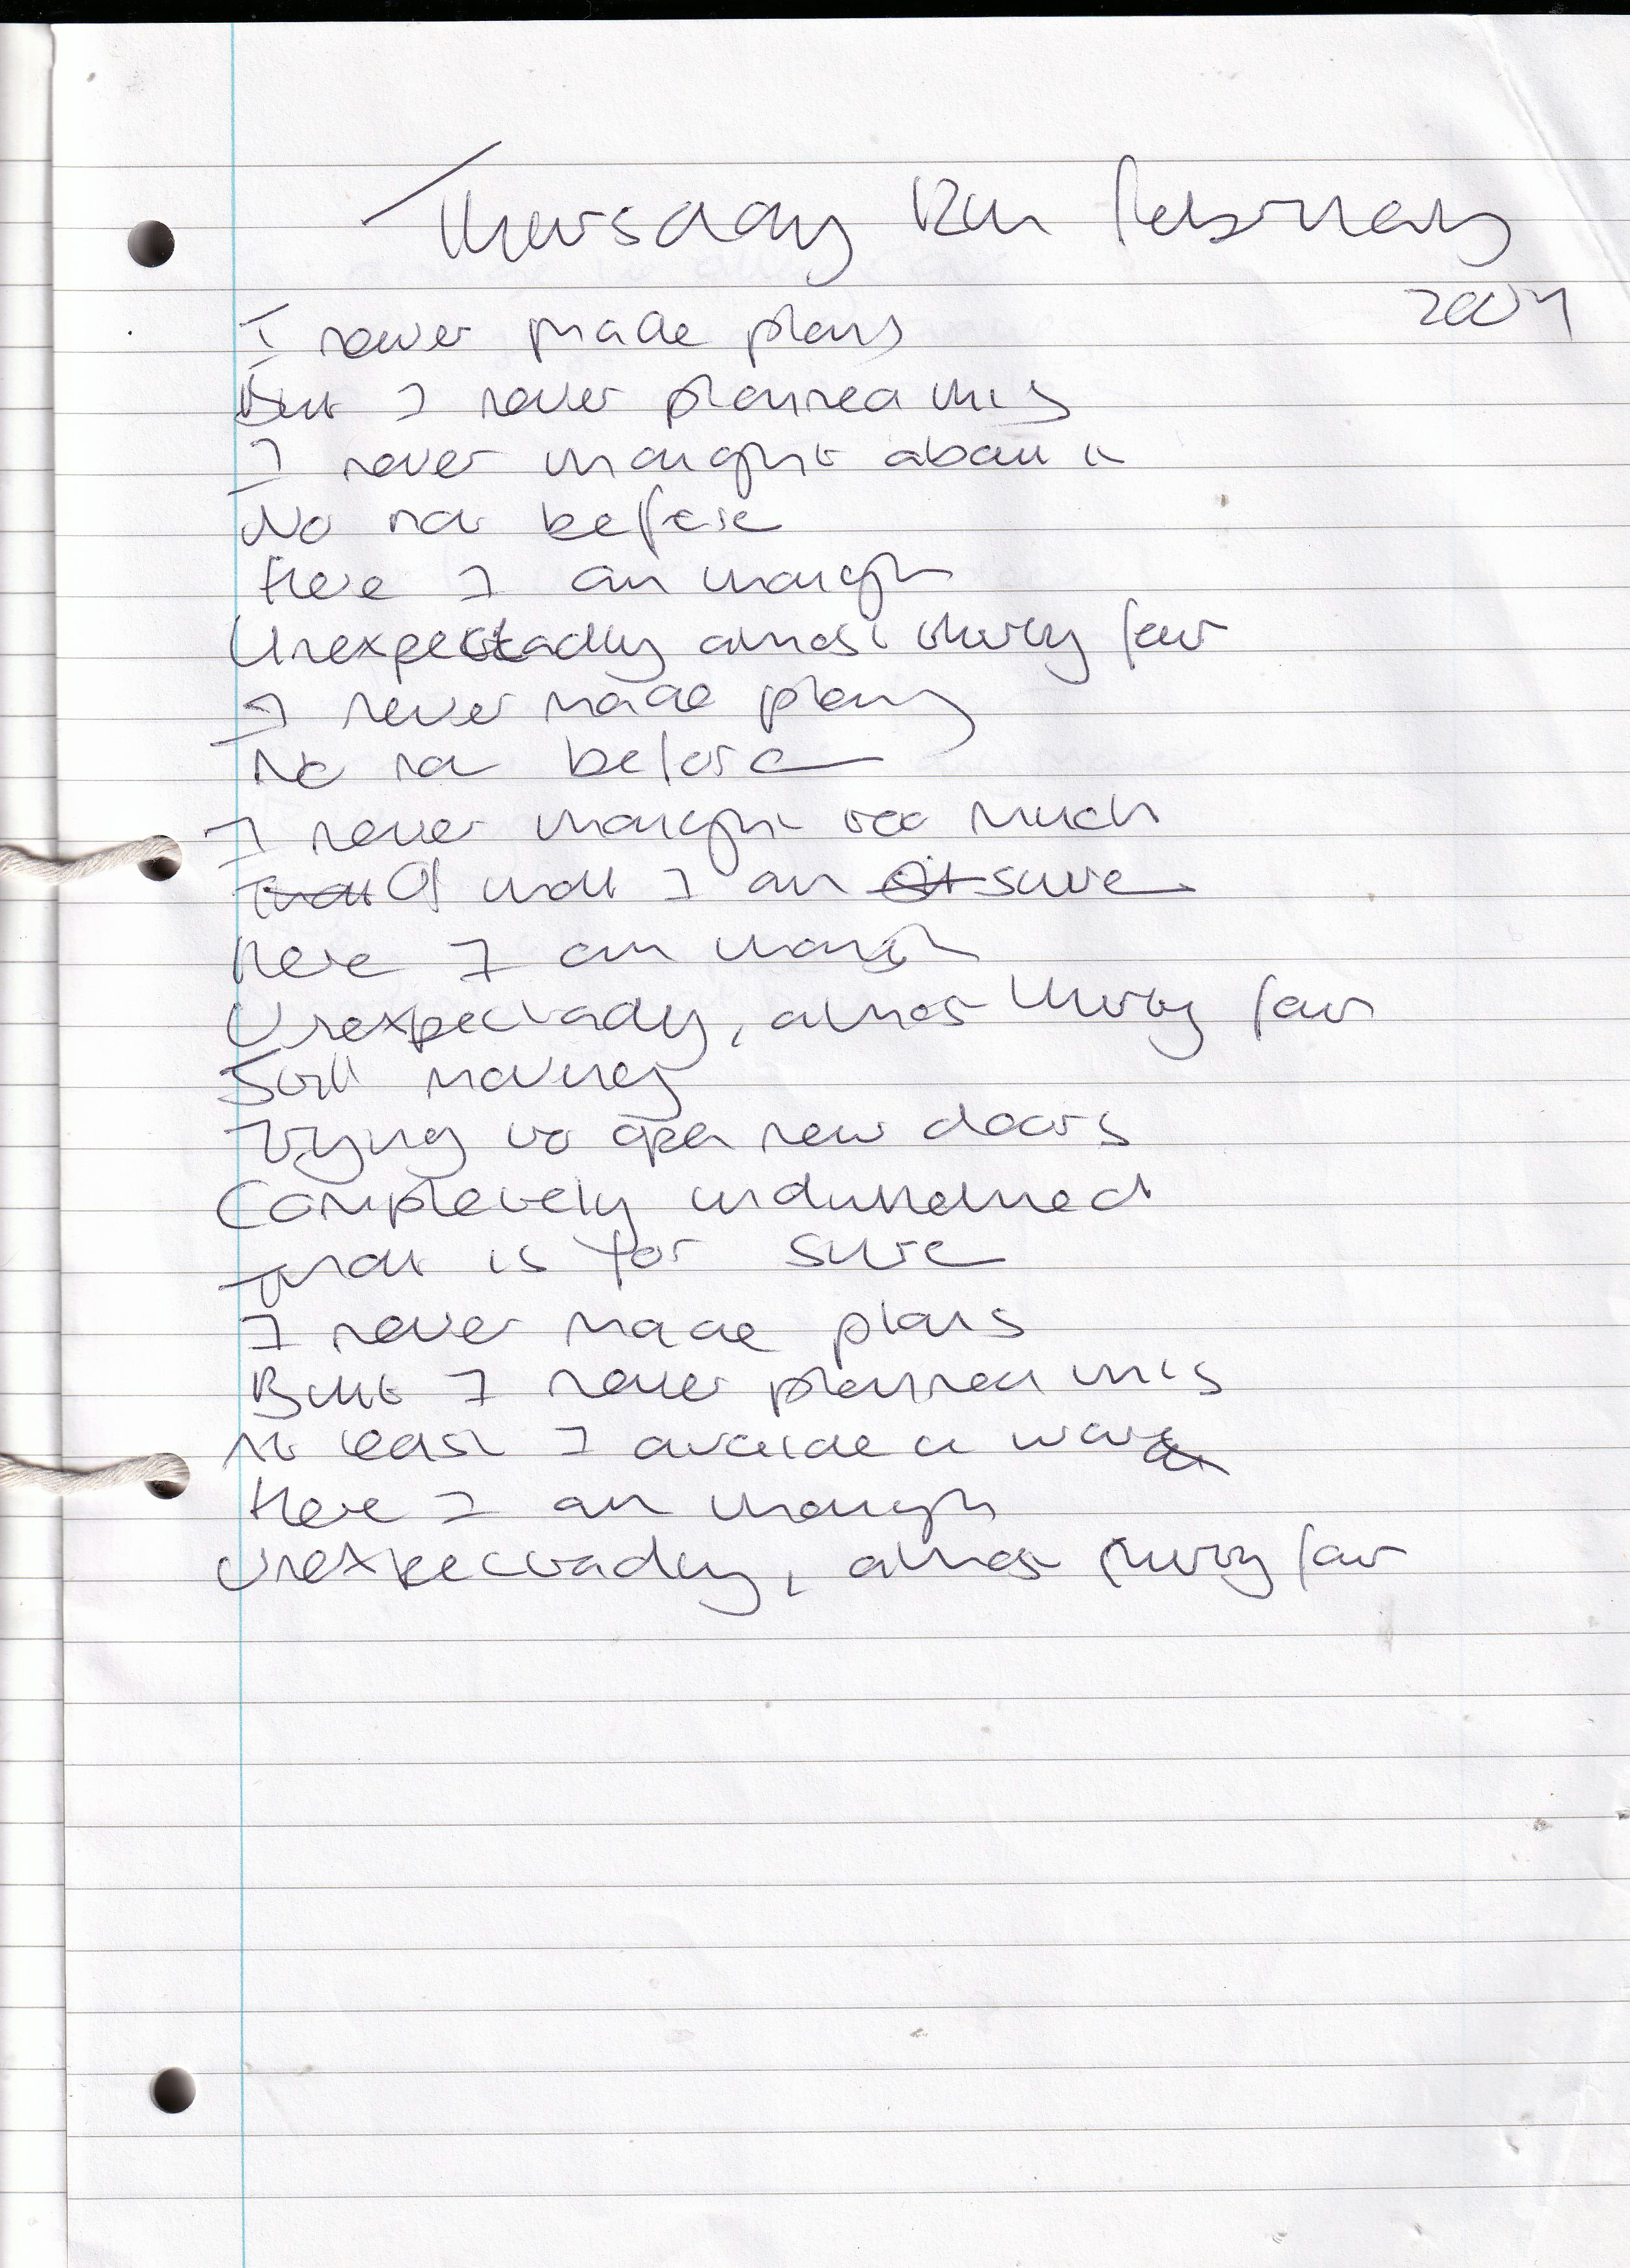 Thursday 12th February
2004
I never made plans
But I never planned this
I never thought about it
No not before
Here I am though
Unexpectadly almost thirty four
I never made plans
No not before
I never thought too much
That Of that I am sure
Here I am though
Unexpectadly, almost thirty four
Still moving
Trying to open new doors
Completely undunhelmed
That is for sure
I never made plans
But I never planned this
At least I avoided a war
Here I am though
Unexpectadly, almost thirty four